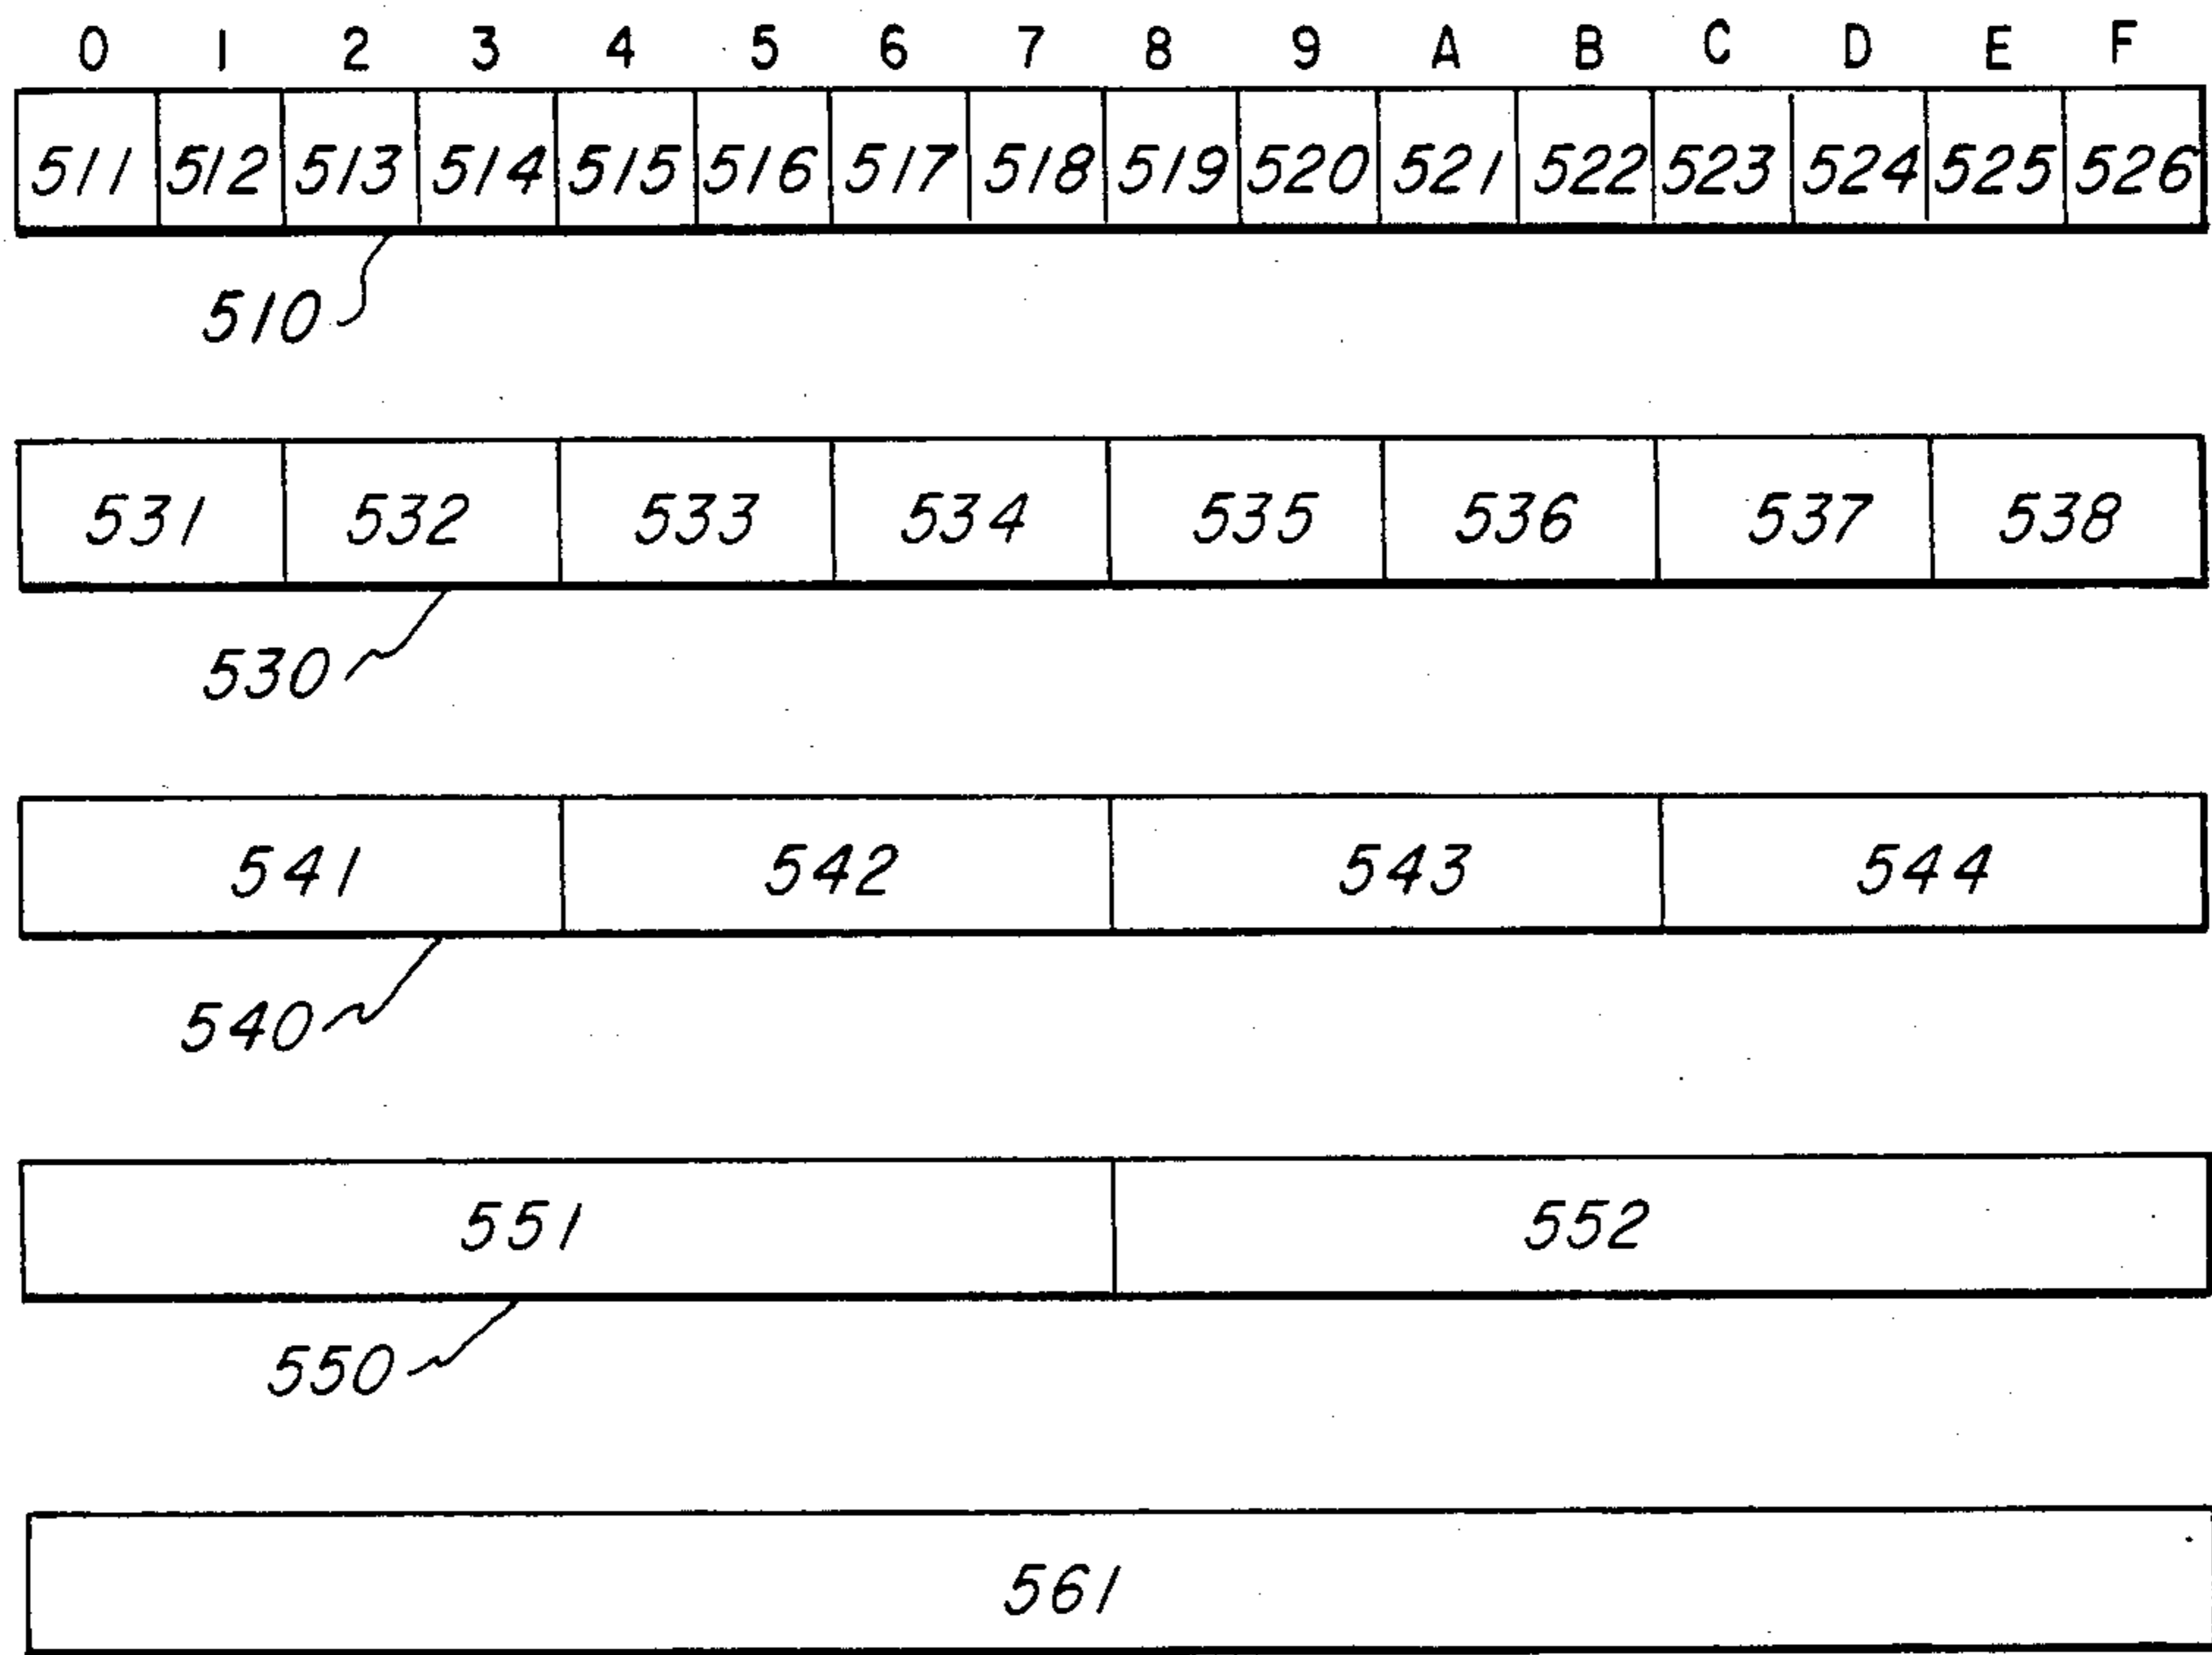 0 1 2 3 4 5 6 7 8 9 A B C D E F
511 512 513 514 515 516 517 518 519 520 521 522 523 524 525 526
510
531 532 533 534 535 536 537 538
530
541 542 543 544
540
551 552
550
561